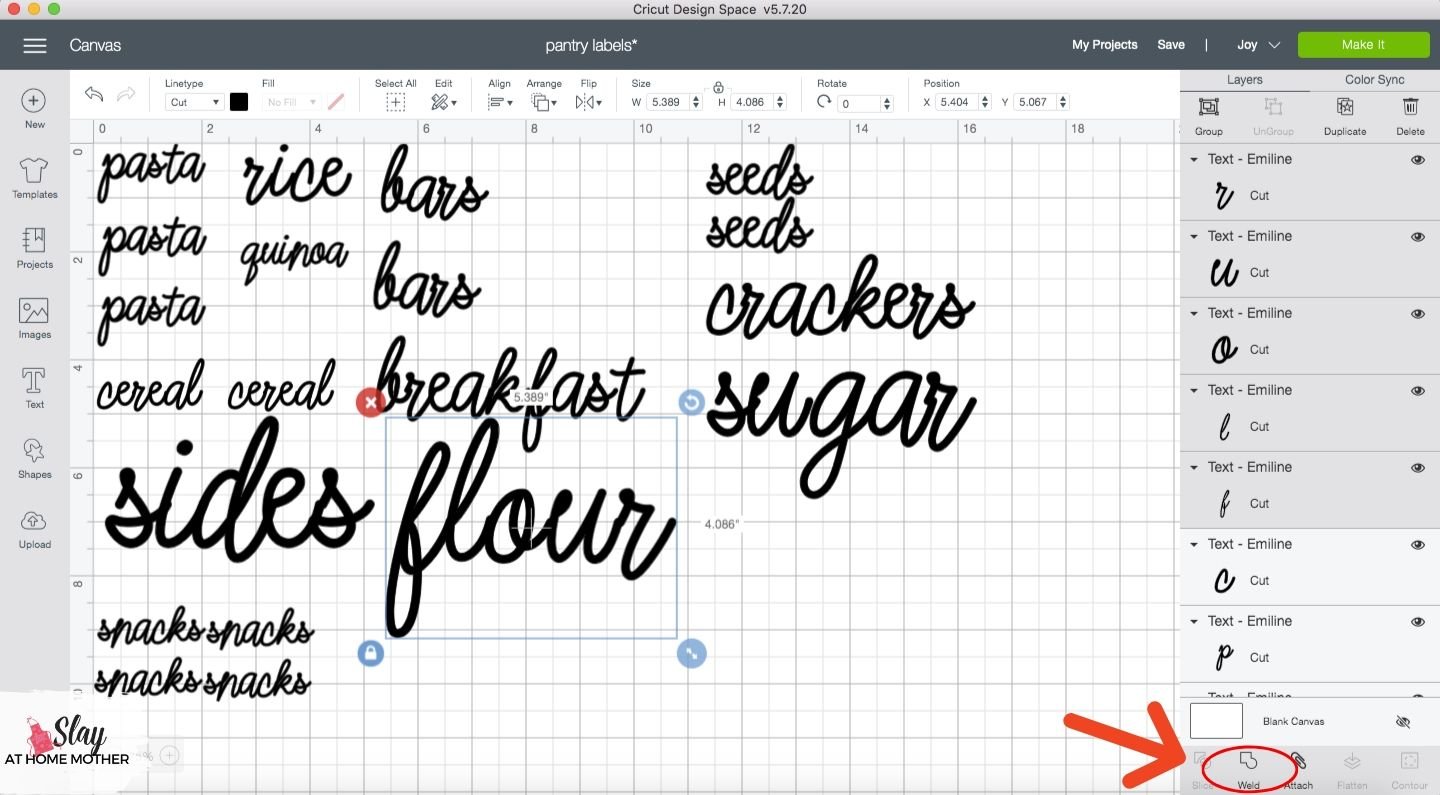 Cricut Design Space v5.7.20
Canvas
pantry labels*
My Projects Save | Joy Make It
New
Templates
Projects
Images
Text
Shapes
Upload
Linetype
Cut
Fill
No Fill
Select All
Edit
Align
Arrange
Flip
Size
W 5.389
H 4.086
Rotate
0
Position
X 5.404
Y 5.067
0 2 4 6 8 10 12 14 16 18
0
2
4
6
8
10
pasta
rice
bars
seeds
pasta
quinoa
seeds
pasta
bars
crackers
cereal
cereal
breakfast
sugar
5.389"
sides
flour
4.086"
snacks snacks
snacks snacks
Slay
AT HOME MOTHER
%
Layers Color Sync
Group UnGroup Duplicate Delete
Text - Emiline
r Cut
Text - Emiline
u Cut
Text - Emiline
o Cut
Text - Emiline
l Cut
Text - Emiline
f Cut
Text - Emiline
c Cut
Text - Emiline
p Cut
Text - Emiline
Blank Canvas
Slice Weld Attach Flatten Contour